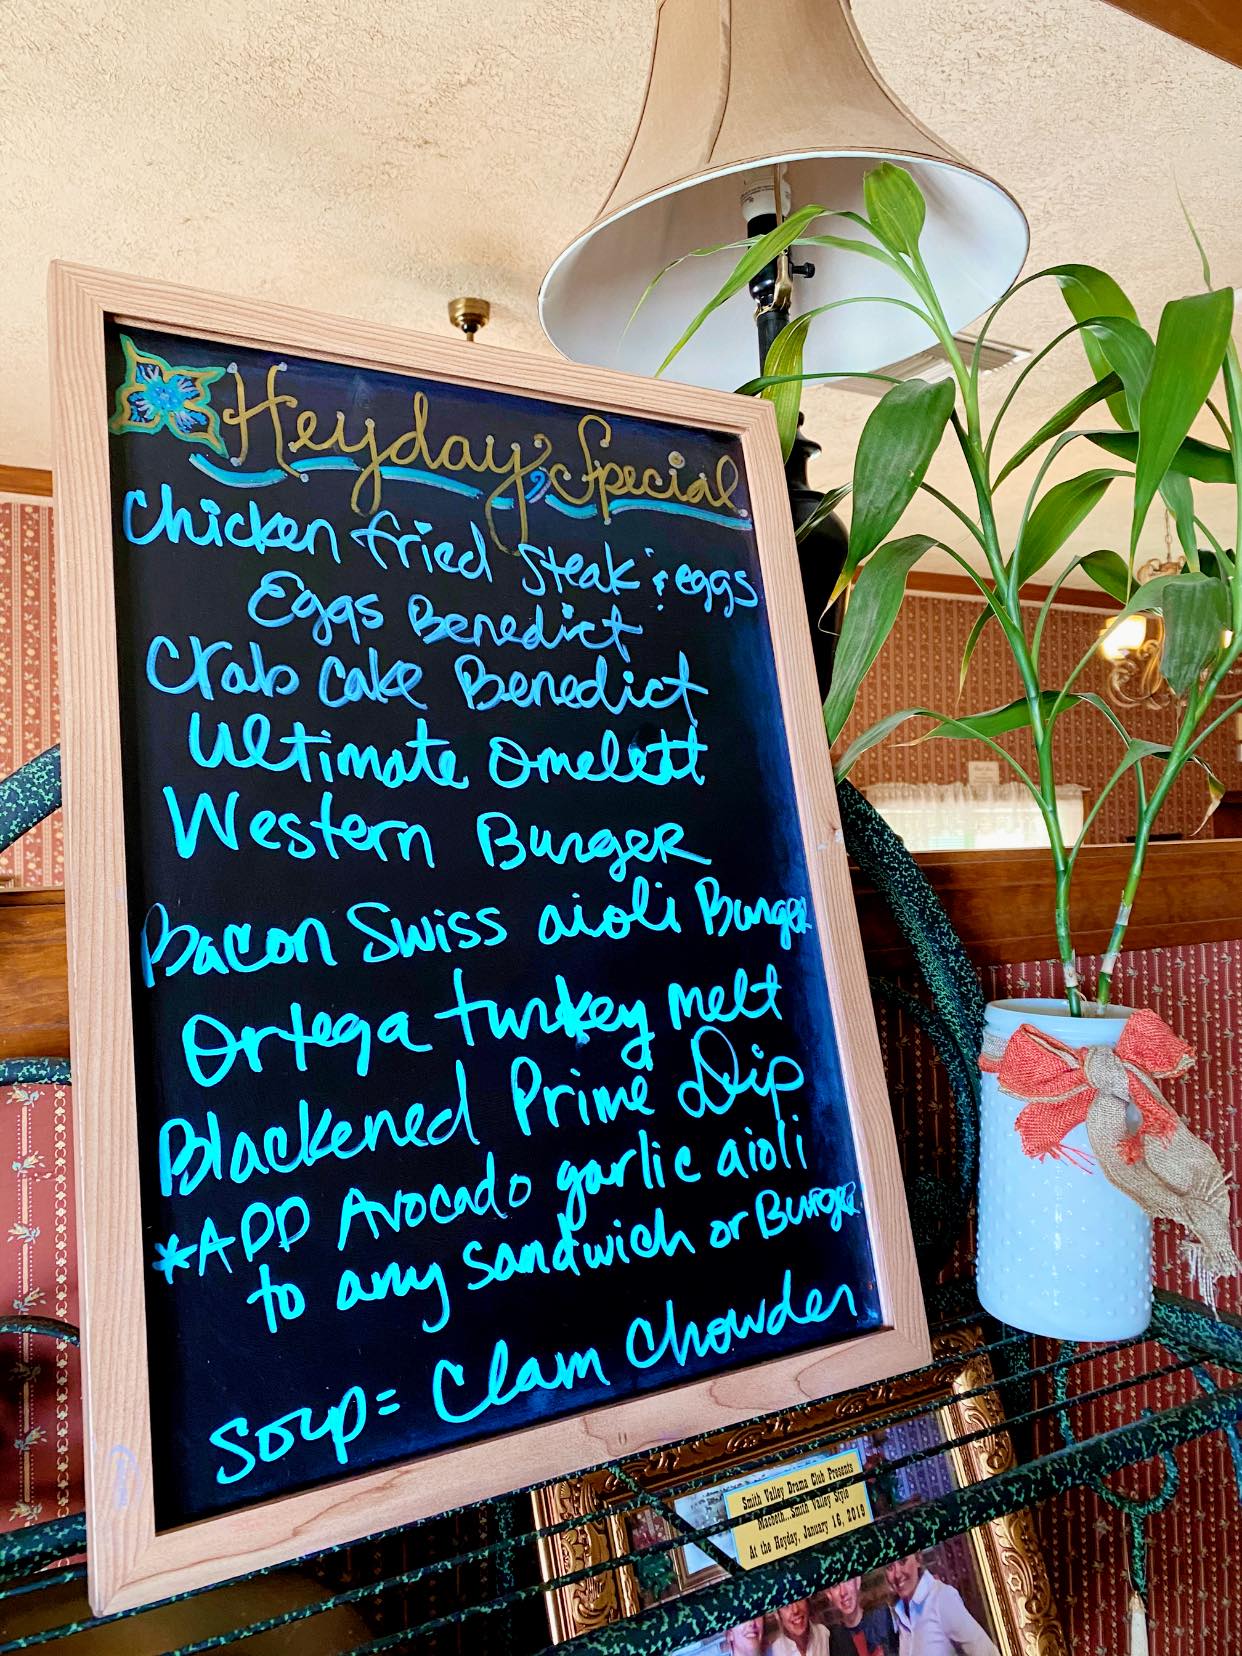 Heyday Special
Chicken fried steak & eggs
Eggs Benedict
Crab Cake Benedict
Ultimate Omelett
Western Burger
Bacon Swiss aioli Burger
Ortega turkey melt
Blackened Prime Dip
*ADD Avocado garlic aioli
to any sandwich or Burger
Soup= Clam Chowder
Smith Valley Drama Club Presents
Macbeth...Smith Valley Style
At the Heyday, January 16, 2019